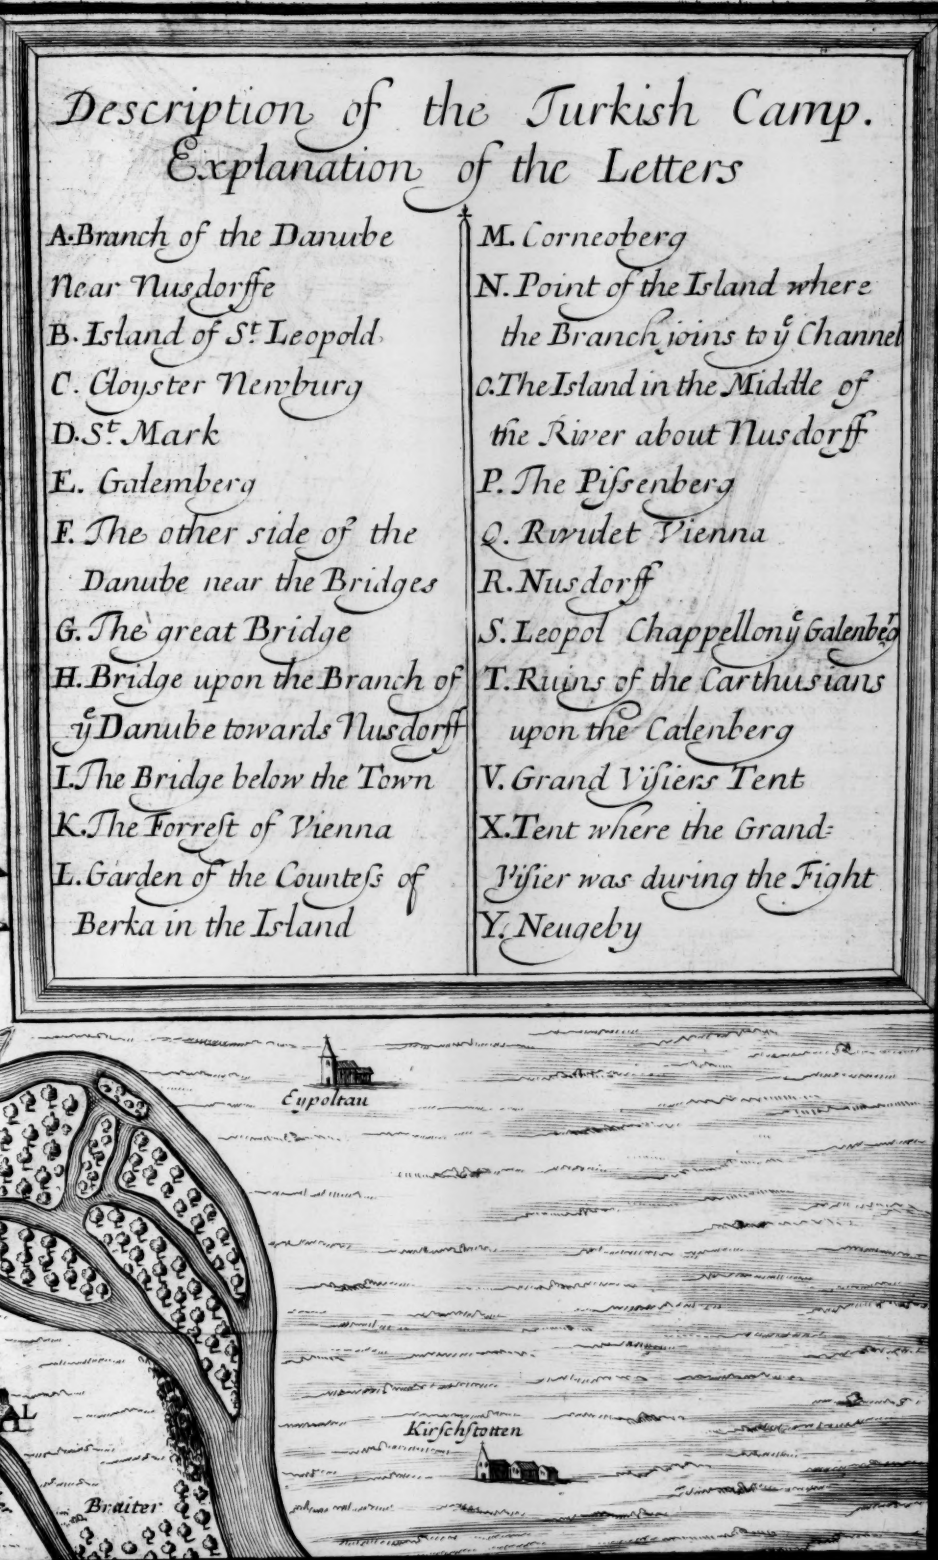 Description of the Turkish Camp.
Explanation of the Letters
A. Branch of the Danube
Near Nusdorffe
B. Island of St. Leopold
C. Cloyster Newburg
D. St. Mark
E. Galemberg
F. The other side of the
Danube near the Bridges
G. The great Bridge
H. Bridge upon the Branch of
ye Danube towards Nusdorff
I. The Bridge below the Town
K. The Forrest of Vienna
L. Garden of the Countess of
Berka in the Island
M. Corneoberg
N. Point of the Island where
the Branch joins to ye Channel
O. The Island in the Middle of
the River about Nusdorff
P. The Pissenberg
Q. Rivulet Vienna
R. Nusdorff
S. Leopol Chappell on ye Galenberg
T. Ruins of the Carthusians
upon the Calenberg
V. Grand Visiers Tent
X. Tent where the Grand=
Visier was during the Fight
Y. Neugeby
Eypoltau
Kirschstotten
AL
Braiter